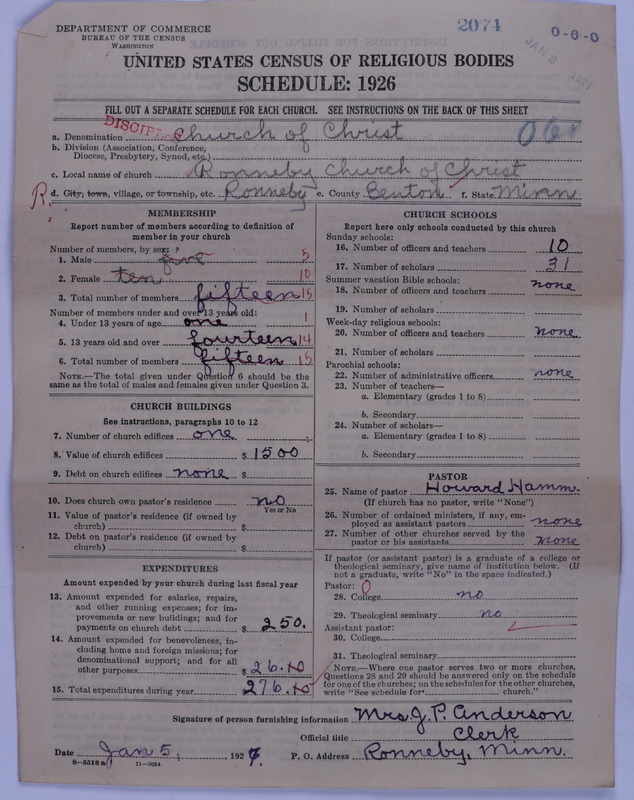 DEPARTMENT OF COMMERCE
BUREAU OF THE CENSUS
WASHINGTON
2074
0-6-0
JAN 8
UNITED STATES CENSUS OF RELIGIOUS BODIES
SCHEDULE: 1926
FILL OUT A SEPARATE SCHEDULE FOR EACH CHURCH. SEE INSTRUCTIONS ON THE BACK OF THIS SHEET
DISCIPLES
a. Denomination Church of Christ
b. Division (Association, Conference, Diocese, Presbytery, Synod, etc.)
c. Local name of church Ronneby Church of Christ
R. d. City, town, village, or township, etc. Ronneby e. County Benton f. State Minn
MEMBERSHIP
Report number of members according to definition of member in your church
Number of members, by sex:
1. Male five 5
2. Female ten 10
3. Total number of members fifteen 15
Number of members under and over 13 years old:
4. Under 13 years of age one 1
5. 13 years old and over fourteen 14
6. Total number of members fifteen 15
NOTE.—The total given under Question 6 should be the same as the total of males and females given under Question 3.
CHURCH BUILDINGS
See instructions, paragraphs 10 to 12
7. Number of church edifices one
8. Value of church edifices $ 1500
9. Debt on church edifices none $
10. Does church own pastor's residence no
Yes or No
11. Value of pastor's residence (if owned by church) $
12. Debt on pastor's residence (if owned by church) $
EXPENDITURES
Amount expended by your church during last fiscal year
13. Amount expended for salaries, repairs, and other running expenses; for improvements or new buildings; and for payments on church debt $ 250.
14. Amount expended for benevolences, including home and foreign missions; for denominational support; and for all other purposes $ 26.10
15. Total expenditures during year $ 276.10
CHURCH SCHOOLS
Report here only schools conducted by this church
Sunday schools:
16. Number of officers and teachers 10
17. Number of scholars 31
Summer vacation Bible schools:
18. Number of officers and teachers none
19. Number of scholars
Week-day religious schools:
20. Number of officers and teachers none
21. Number of scholars
Parochial schools:
22. Number of administrative officers none
23. Number of teachers—
a. Elementary (grades 1 to 8)
b. Secondary
24. Number of scholars—
a. Elementary (grades 1 to 8)
b. Secondary
PASTOR
25. Name of pastor Howard Hamm
(If church has no pastor, write "None")
26. Number of ordained ministers, if any, employed as assistant pastors none
27. Number of other churches served by the pastor or his assistants none
If pastor (or assistant pastor) is a graduate of a college or theological seminary, give name of institution below. (If not a graduate, write "No" in the space indicated.)
Pastor: 0
28. College no
29. Theological seminary no
Assistant pastor:
30. College
31. Theological seminary
NOTE.—Where one pastor serves two or more churches, Questions 28 and 29 should be answered only on the schedule for one of the churches; on the schedules for the other churches, write "See schedule for church."
Signature of person furnishing information Mrs J. P. Anderson
Official title Clerk
Date Jan 5, 1927 P. O. Address Ronneby, Minn.
8-5518a 11-7054